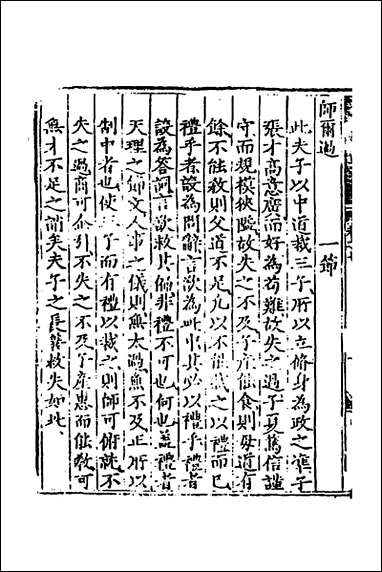 師爾過　一節
此夫子以中道裁三子所以立脩身為政之準子
張才高意廣而好為苟難故失之過子夏篤信謹
守而規模狹隘故失之不及子産能食則母道有
餘不能教則父道不足凡以不能裁之以禮而已
禮乎者設為問辭言欲為此事其必以禮乎禮者
設為答詞言欲救其偏非禮不可也何也蓋禮者
天理之節文人事之儀則無太過無不及正所以
制中者也使三子而有禮以裁之則師可俯就不
失之過商可企引不失之不及子產惠而能教可
無才不足之誚矣夫子之長善救失如此